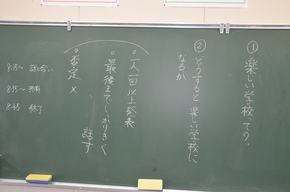 ① 楽しい学校って？
② どうすると楽しい学校に
なるか
○一人一回以上発表
○最後までしっかりきく
話す
○否定 ×
8:25〜
8:35〜 共有
8:45 終了